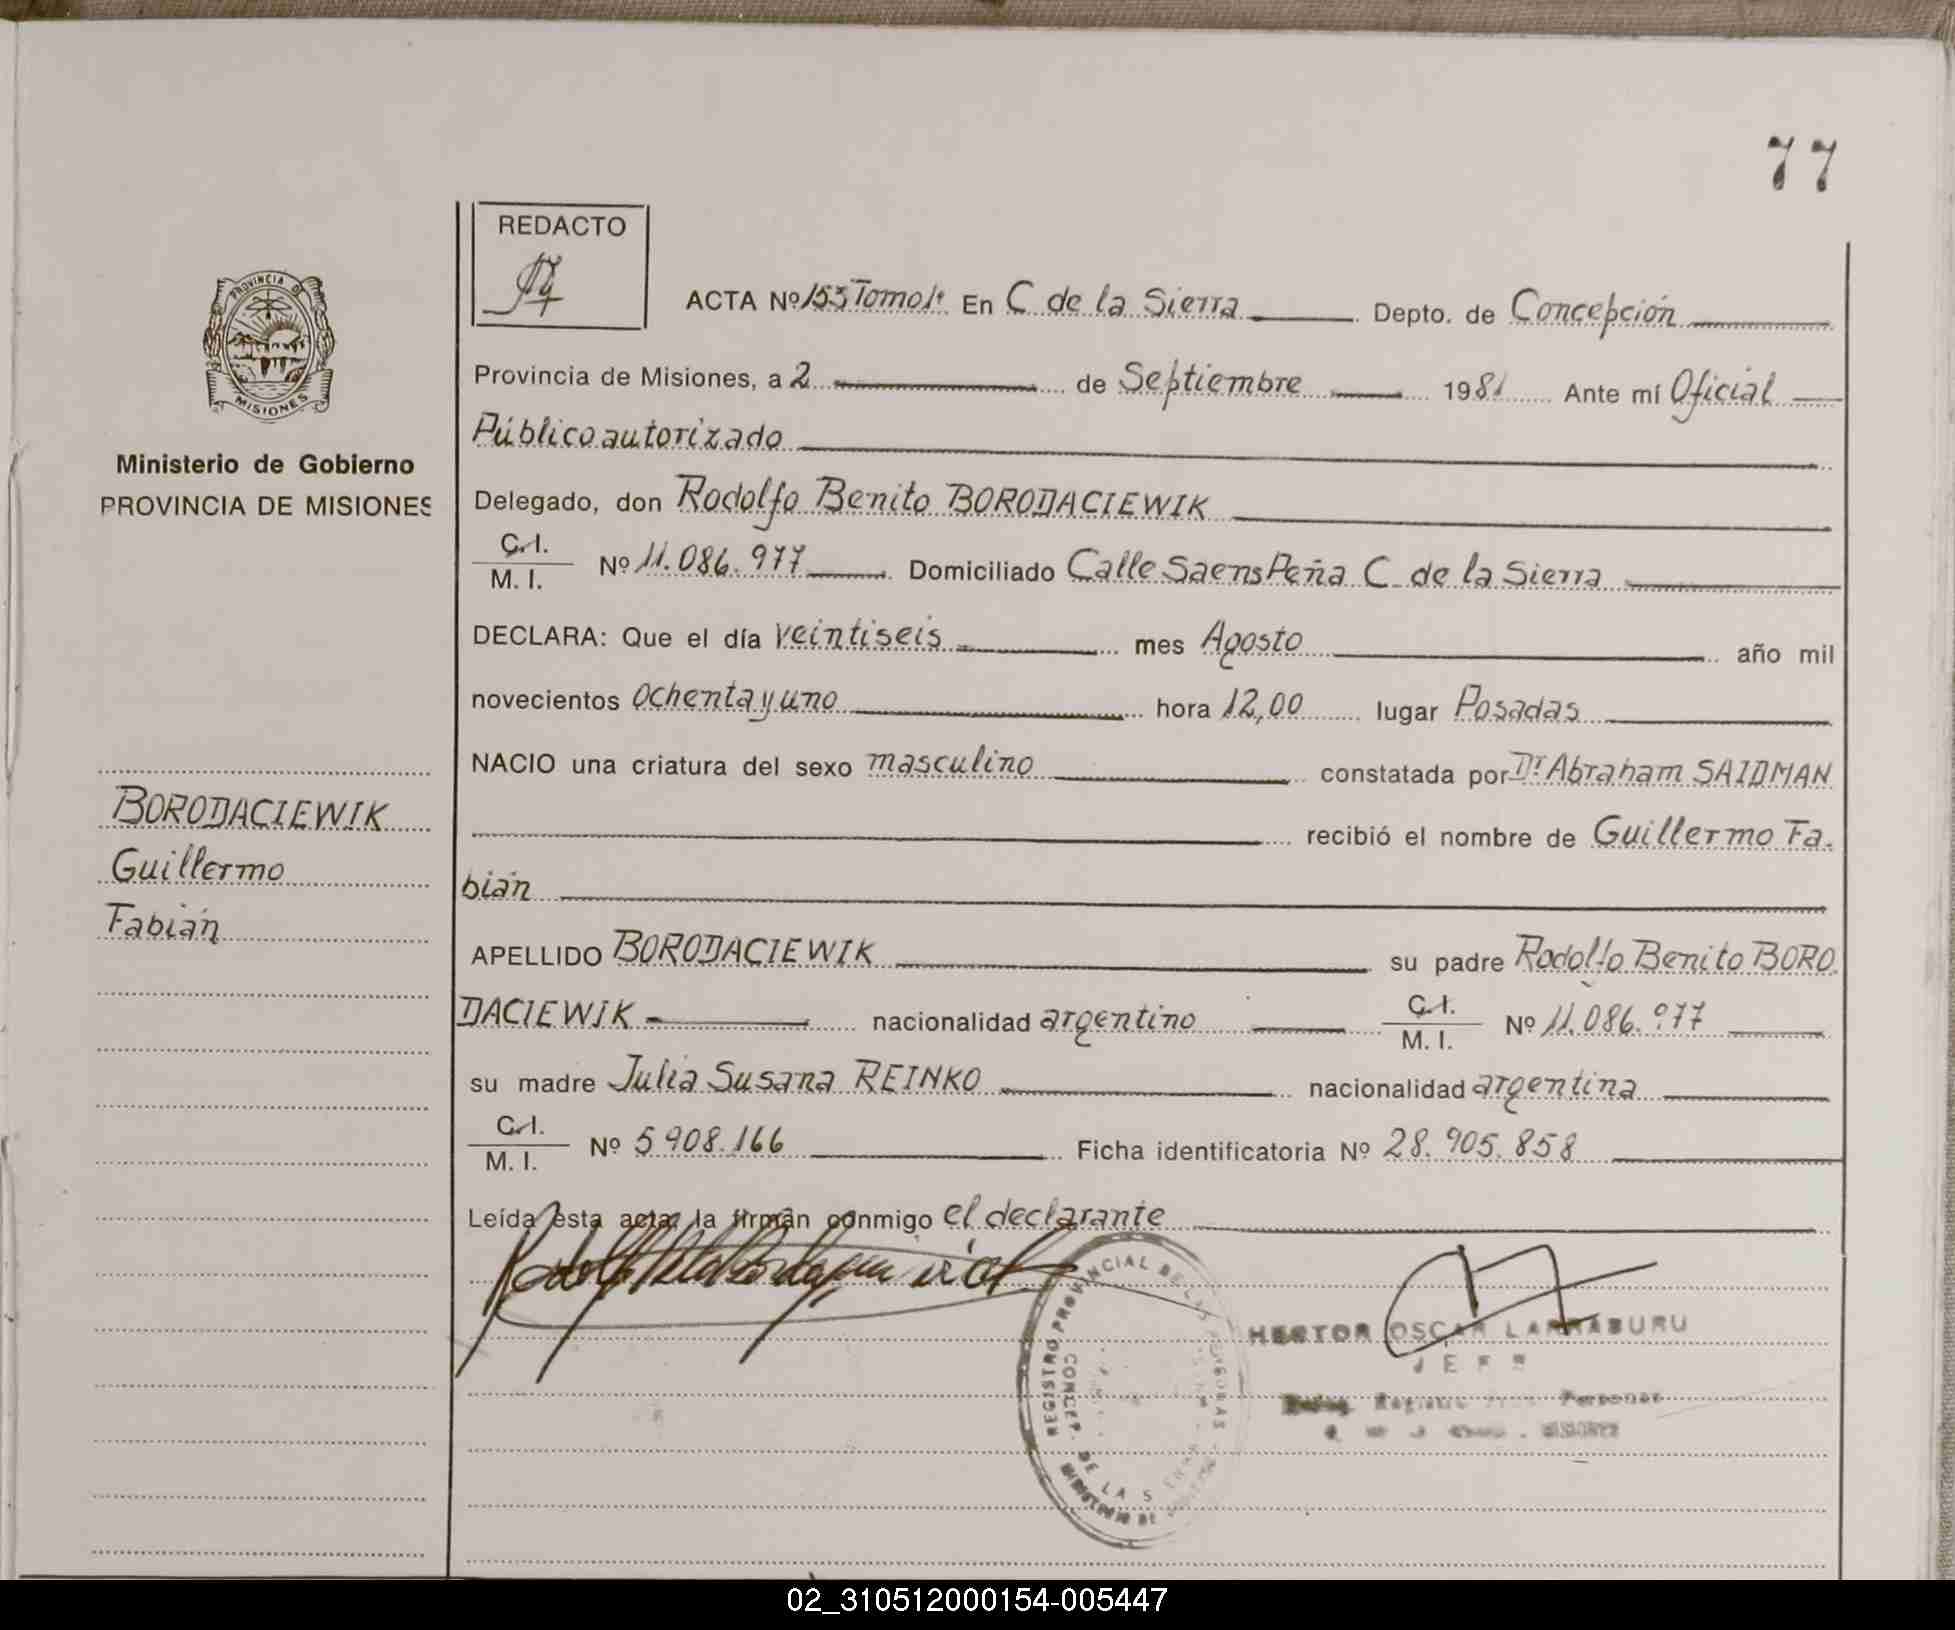 77
REDACTO
ACTA Nº 153 Tomo 1º En C. de la Sierra Depto. de Concepción
PROVINCIA DE
MISIONES
Provincia de Misiones, a 2 de Septiembre 1981 Ante mí Oficial
Público autorizado
Ministerio de Gobierno
PROVINCIA DE MISIONES
Delegado, don Rodolfo Benito BORODACIEWIK
C.I.
M. I. Nº 11.086.977 Domiciliado Calle Saens Peña C. de la Sierra
DECLARA: Que el día veintiseis mes Agosto año mil
novecientos ochenta y uno hora 12,00 lugar Posadas
NACIO una criatura del sexo masculino constatada por Dr Abraham SAIDMAN
recibió el nombre de Guillermo Fa-
bián
BORODACIEWIK
Guillermo
Fabián
APELLIDO BORODACIEWIK su padre Rodolfo Benito BORO
DACIEWIK nacionalidad argentino C.I. M. I. Nº 11.086.977
su madre Julia Susana REINKO nacionalidad argentina
C.I.
M. I. Nº 5.908.166 Ficha identificatoria Nº 28.905.858
Leída esta acta, la firman conmigo el declarante
REGISTRO PROVINCIAL DE LAS PERSONAS
CONCEP. DE LA SIERRA
HECTOR OSCAR LARRABURU
JEFE
Personas
MISIONES
02_310512000154-005447